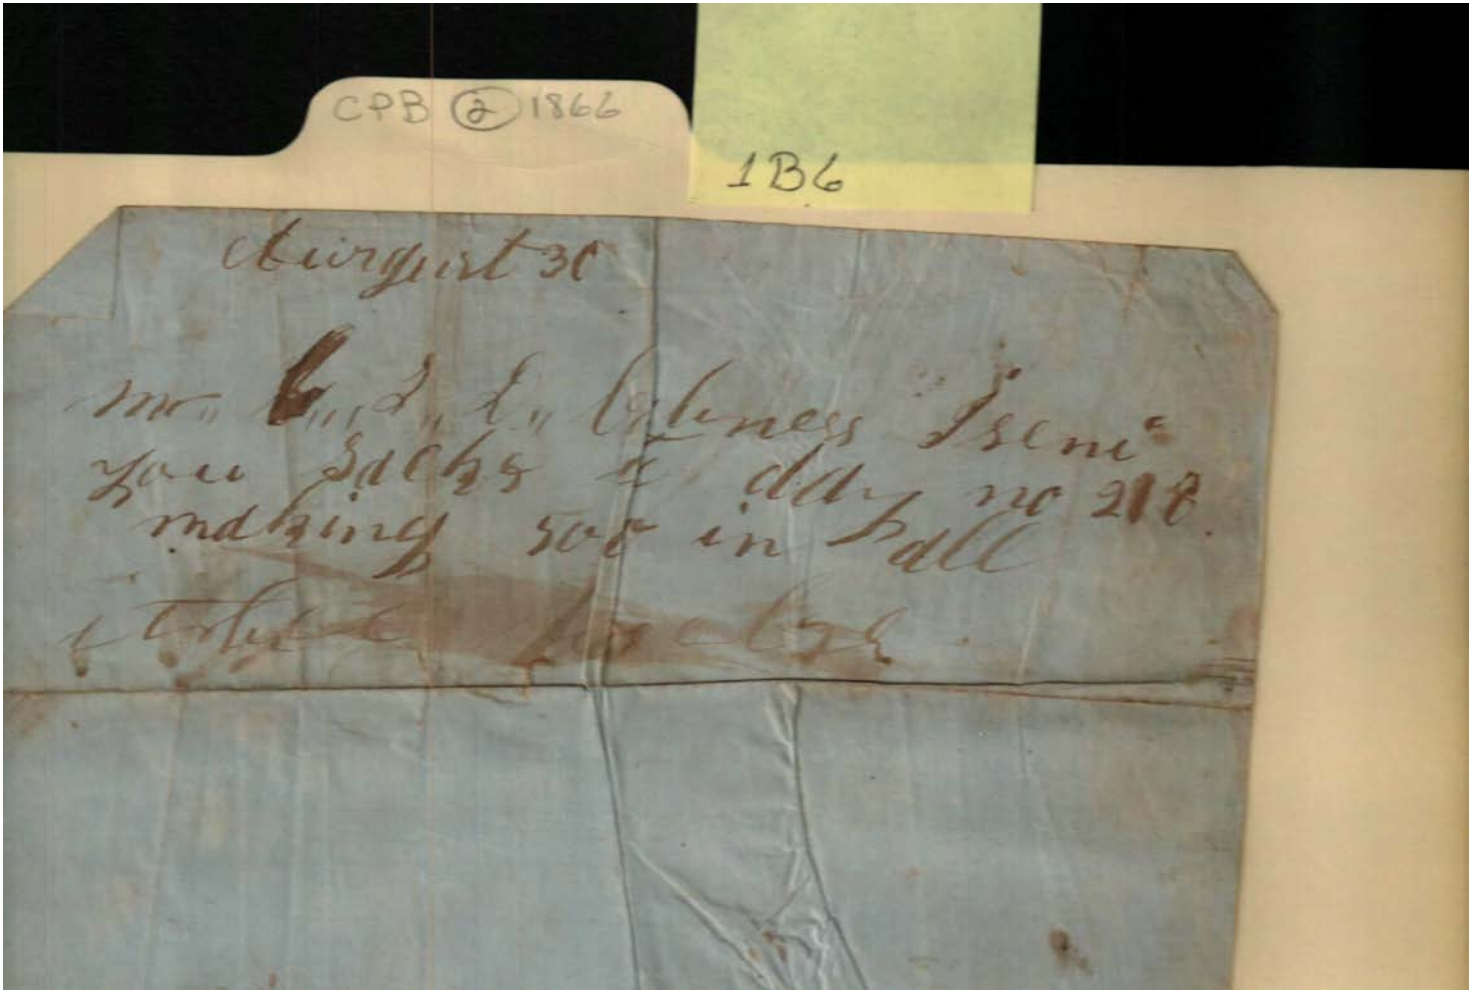 CPB 2 1866
1B6
Aurgust 30
mr,, C,,, L,, L,, I send
you Sacks to day no 218
making 500 in all